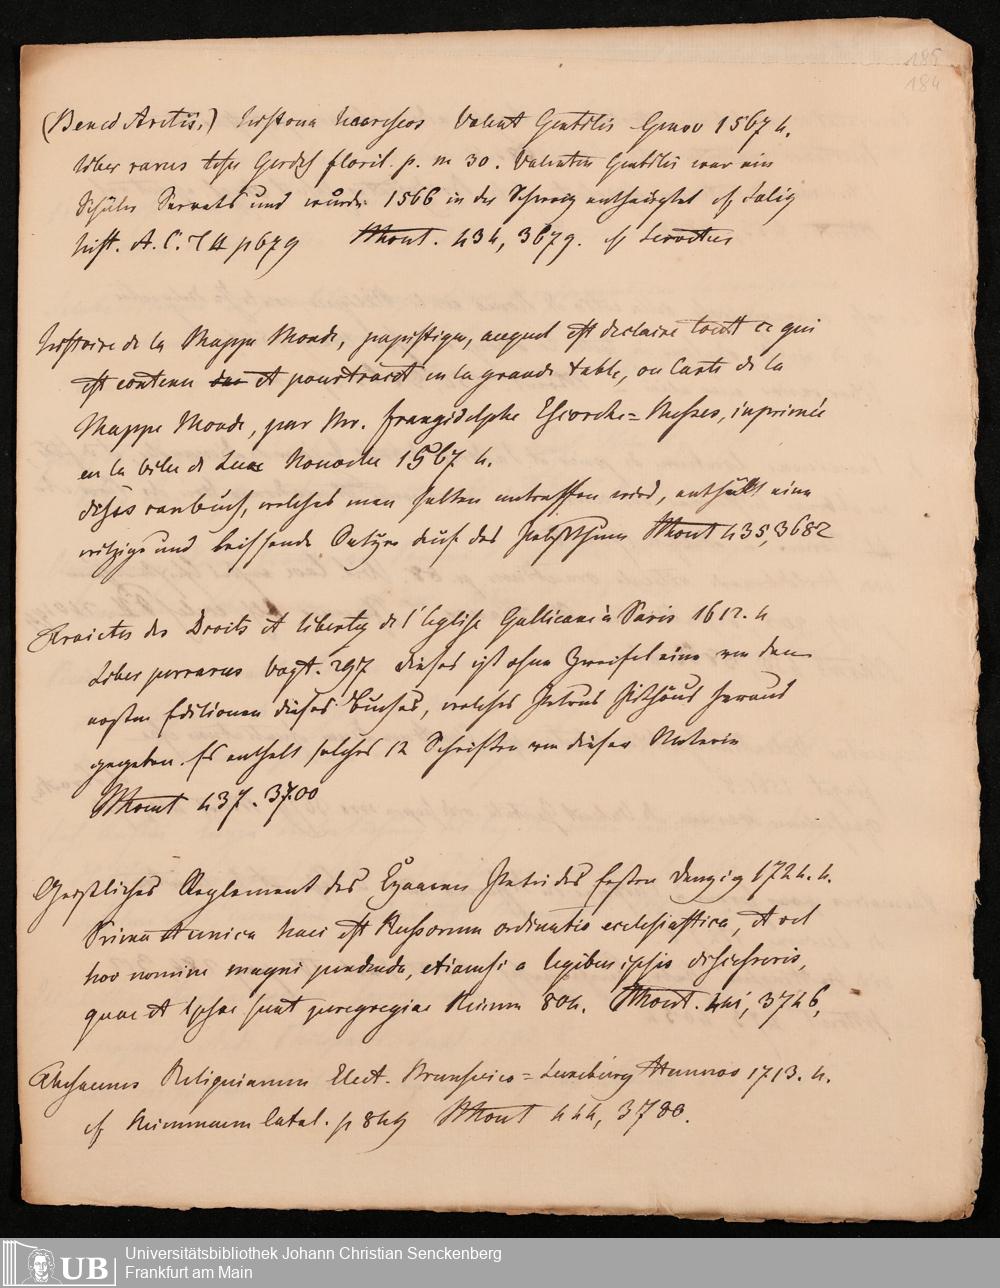 185
184
(Bened Aretii.) historia Valent Gentilis Genev 1567 4.
liber rarus Gerdes floril. p. m 30. Valentin Gentilis war ein
Schüler Servets und wurde 1566 in der Schweiz enthauptet cf Salig
hist. A. C. T II p 679 Mout. 434, 3679. cf Servetus
histoire de la Mappe Monde, papistique, auquel est declaire tout ce qui
est contenu et pourtraict en la grande table, ou Carte de la
Mappe Monde, par Mr. Frangidelphe Escorche=Messes, inprimée
en la ville de Luce Nouvelle 1567 4.
dieses buch, welches man selten antreffen wird, enthält eine
witzige und beissende Satyre auf das Pabstthum Mout 435, 3682
Traictez des Droits et libertez de l'Eglise Gallicane à Paris 1612. 4
Liber perrarus Vogt. 297 dieses ist ohne Zweifel eine von den
ersten Editionen dieses Buches, welches Petrus Pithöus heraus
gegeben. Es enthält solches 12 Schriften von dieser Materie
Mout 437. 3700
Geistliches Reglement des Czaaren Petri des ersten Danzig 1724. 4.
Prima et unica haec est Russorum ordinatio ecclesiastica, et vel
hoc nomine magni pendenda, etiamsi a legibus ipsis discesseris,
quae et ipsae sunt peregregiae 804. Mout. 441, 3746,
Reliquiarum Elect. Brunsvico=Luneburg Hannov 1713. 4.
cf Catal. p 849 Mout 444, 3780.
UB
Universitätsbibliothek Johann Christian Senckenberg
Frankfurt am Main